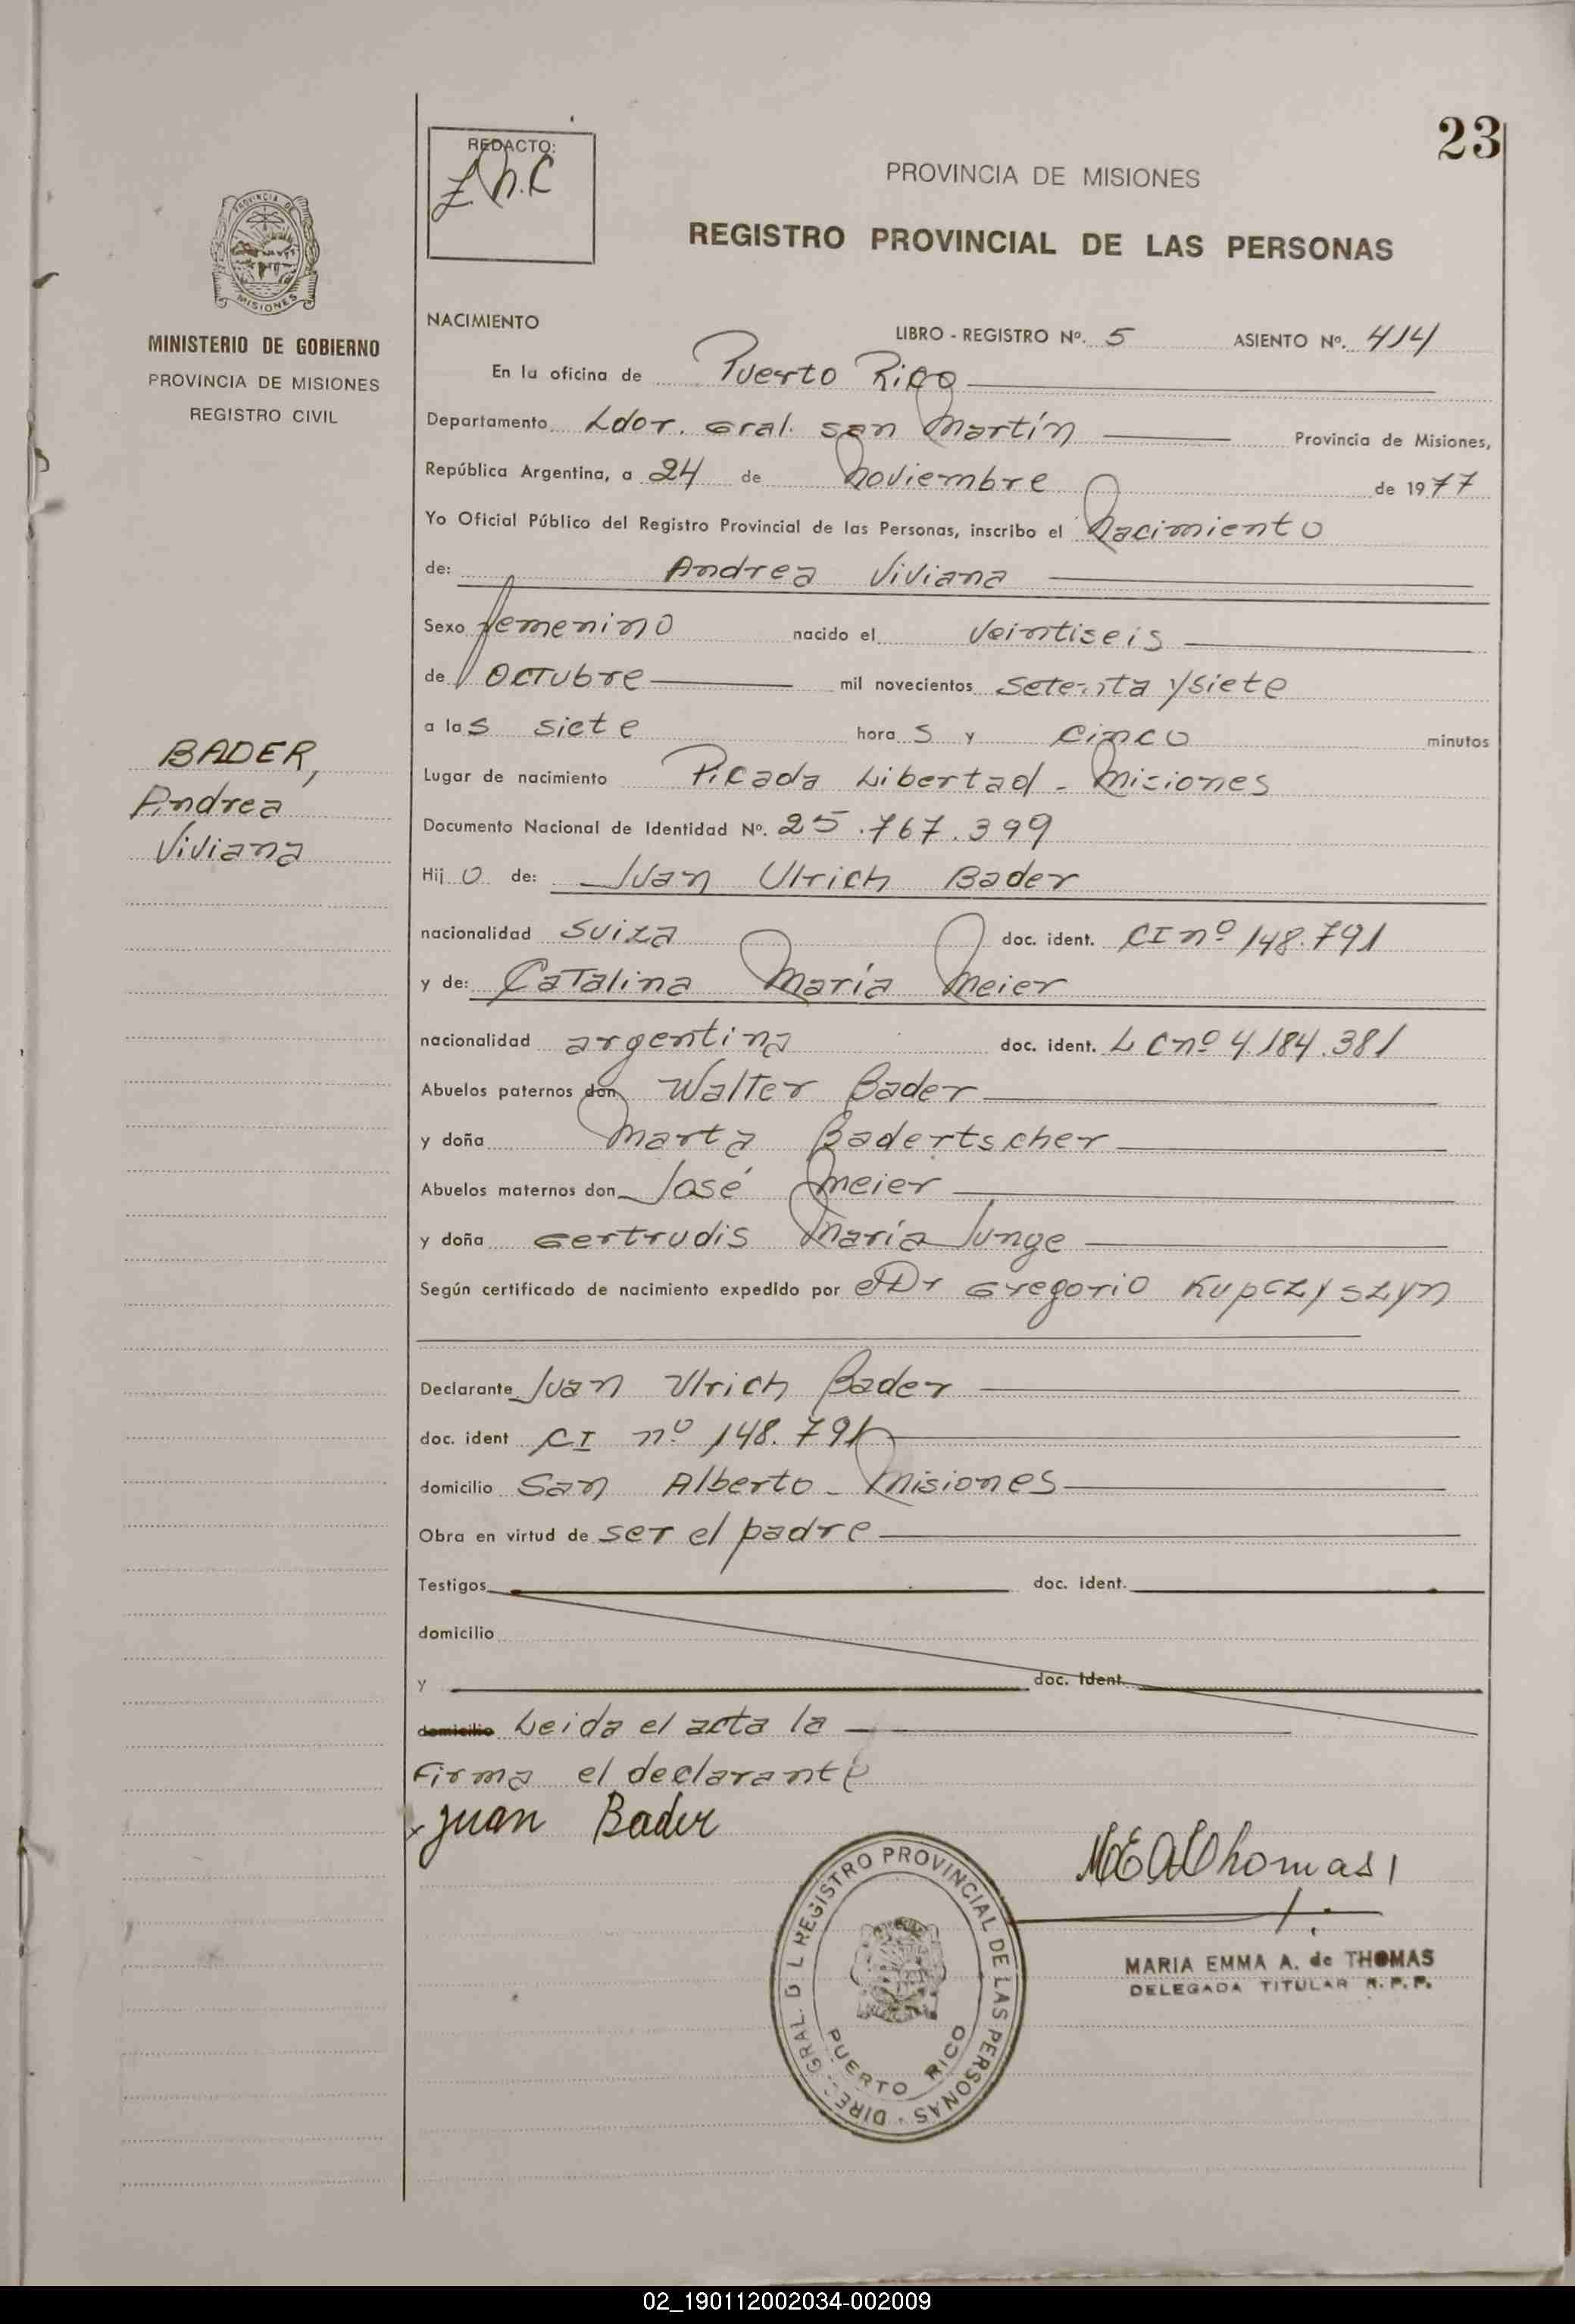 23
REDACTO:
PROVINCIA DE MISIONES
REGISTRO PROVINCIAL DE LAS PERSONAS
PROVINCIA DE
MISIONES
MINISTERIO DE GOBIERNO
PROVINCIA DE MISIONES
REGISTRO CIVIL
BADER,
Andrea
Viviana
NACIMIENTO
LIBRO - REGISTRO Nº. 5 ASIENTO Nº. 414
En la oficina de Puerto Rico
Departamento Ldor. Gral. San Martín Provincia de Misiones,
República Argentina, a 24 de Noviembre de 1977
Yo Oficial Público del Registro Provincial de las Personas, inscribo el Nacimiento
de: Andrea Viviana
Sexo femenino nacido el veintiseis
de Octubre mil novecientos setenta y siete
a las siete horas y cinco minutos
Lugar de nacimiento Picada Libertad - Misiones
Documento Nacional de Identidad Nº. 25.767.399
Hijo de: Juan Ulrich Bader
nacionalidad suiza doc. ident. CI nº 148.791
y de: Catalina María Meier
nacionalidad argentina doc. ident. L C nº 4.184.381
Abuelos paternos don Walter Bader
y doña Marta Badertscher
Abuelos maternos don José Meier
y doña Gertrudis María Junge
Según certificado de nacimiento expedido por el Dr Gregorio Kupczyszyn
Declarante Juan Ulrich Bader
doc. ident CI nº 148.791
domicilio San Alberto - Misiones
Obra en virtud de ser el padre
Testigos doc. ident.
domicilio
y doc. ident.
domicilio Leida el acta la
firma el declarante
Juan Bader
MEAThomas
MARIA EMMA A. de THOMAS
DELEGADA TITULAR R.P.P.
DIREC. GRAL. D L REGISTRO PROVINCIAL DE LAS PERSONAS
PUERTO RICO
02_190112002034-002009